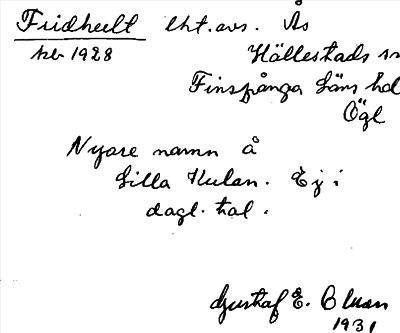 Fridhult lht. avs. Ås
kb 1928 Hällestads sn
Finspånga läns hd
Ögl
Nyare namn å
Lilla Kulan. Ej i
dagl. tal.
Gustaf E.
1931